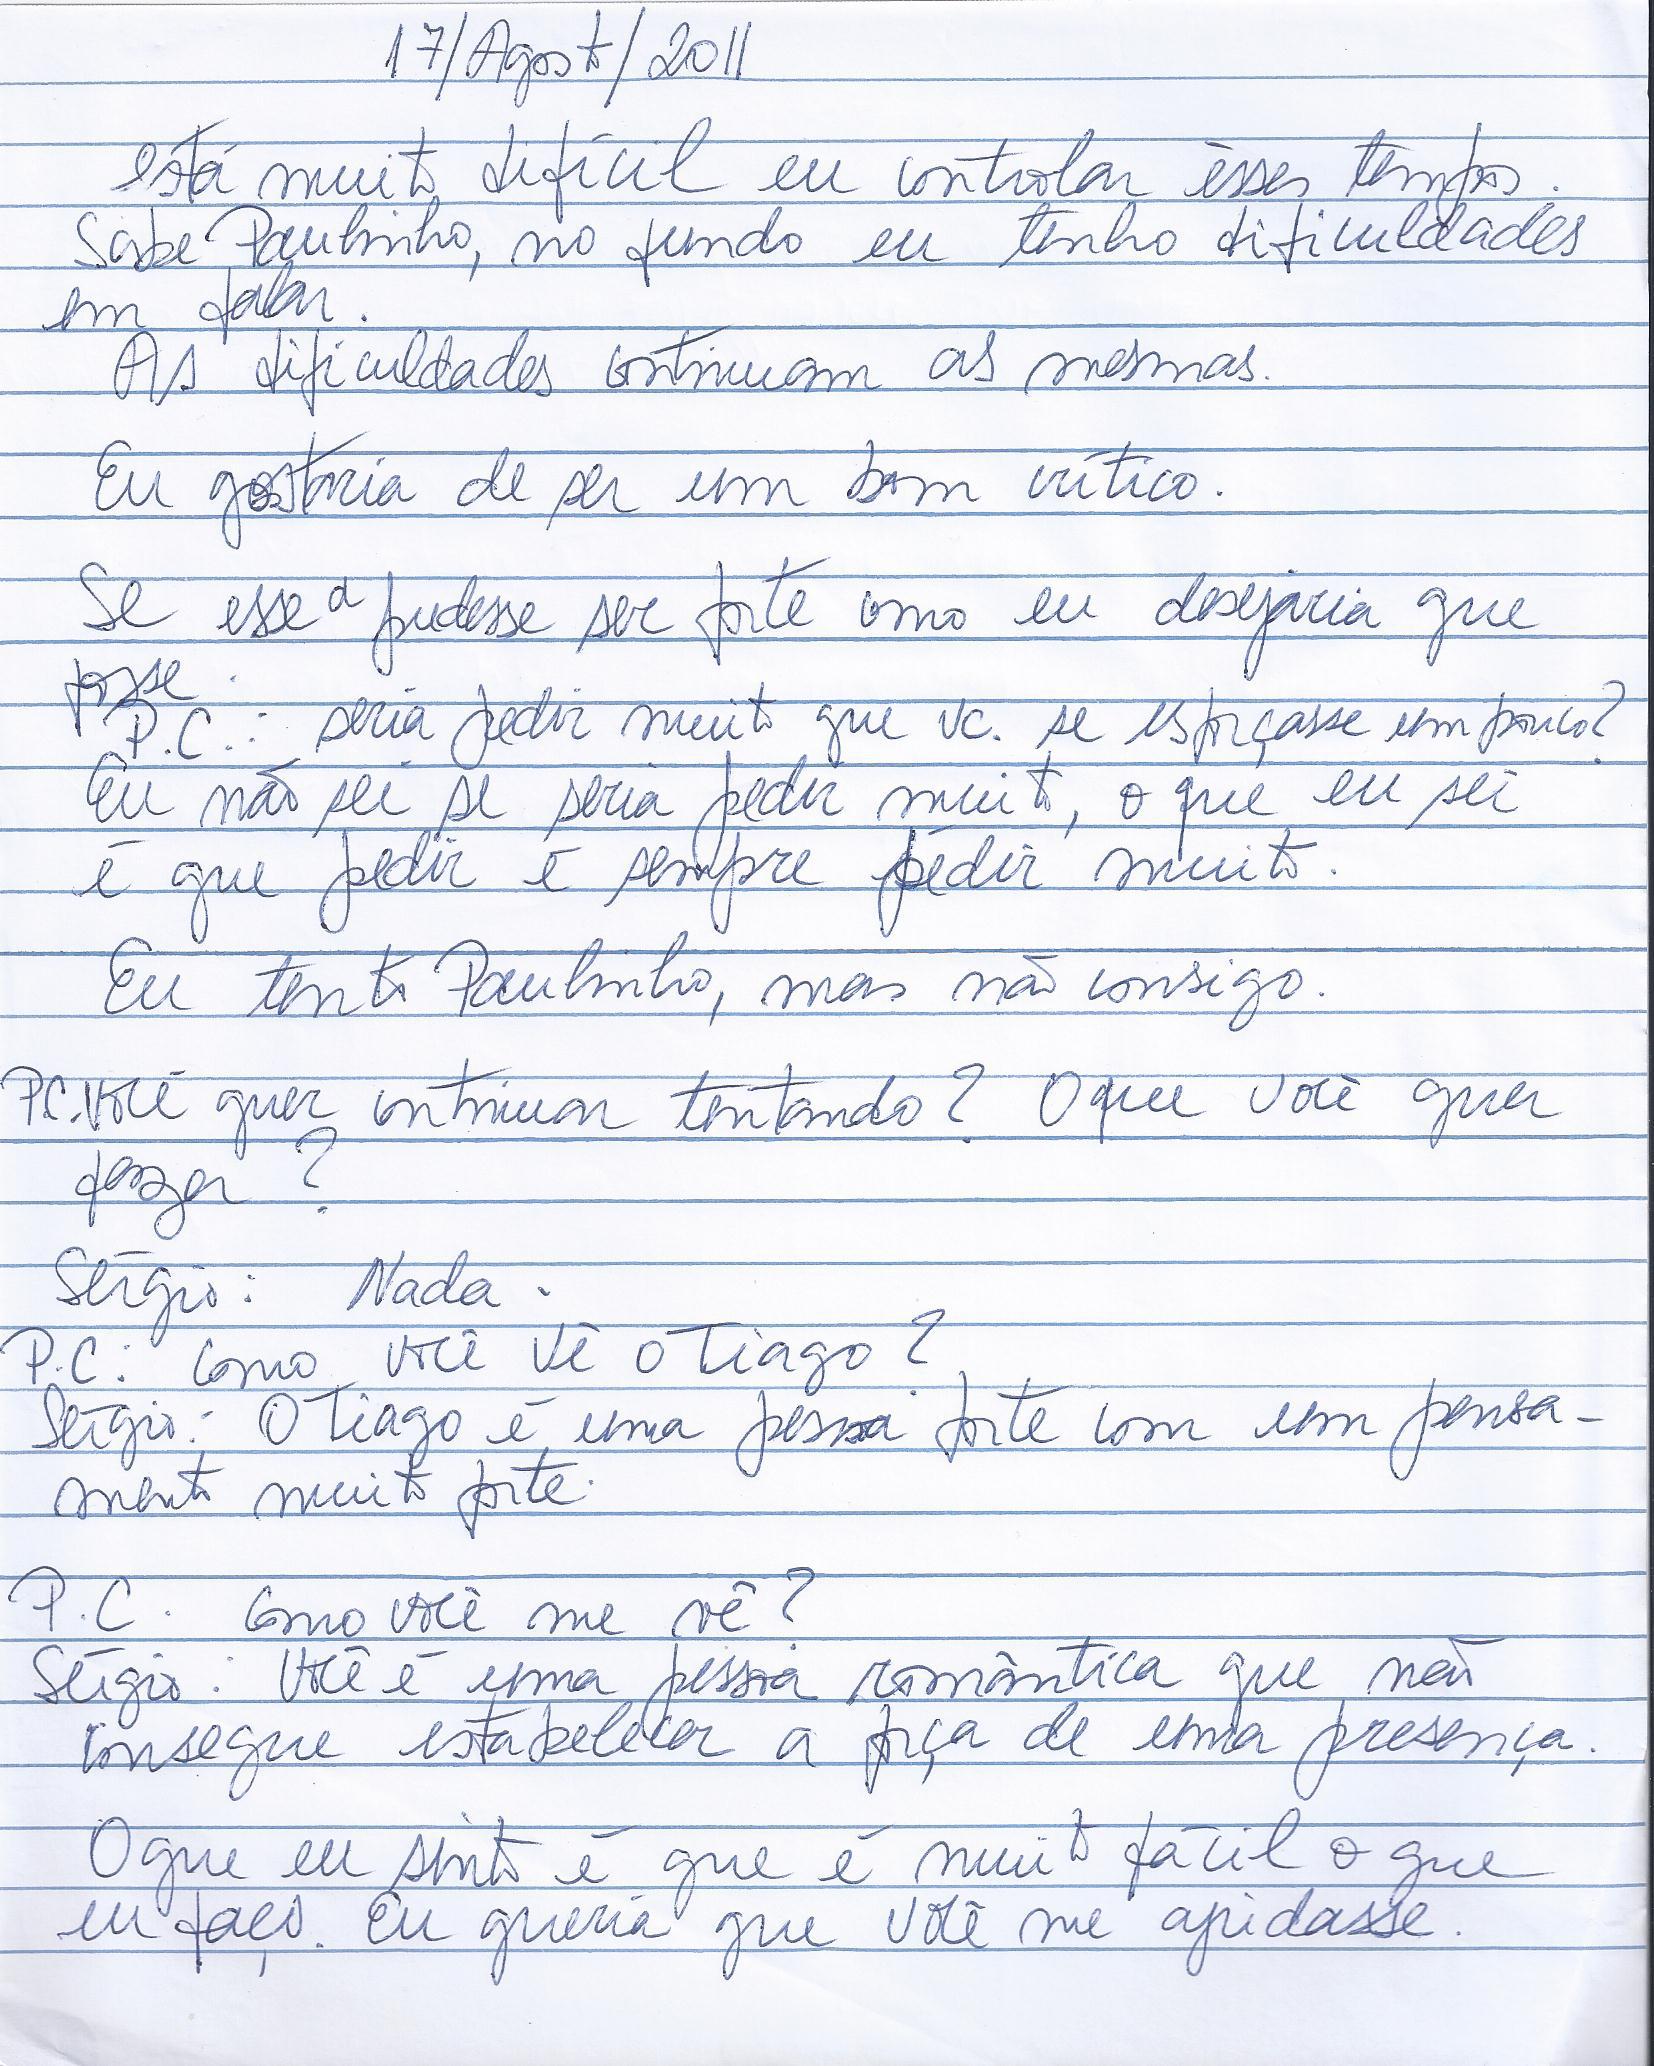 17/Agosto/2011
está muito difícil eu controlar êsses tempos.
Sabe Paulinho, no fundo eu tenho dificuldades
em falar.
As dificuldades continuam as mesmas.
Eu gostaria de ser um bom crítico.
Se esse a pudesse ser forte como eu desejaria que
fosse.
P.C.: seria pedir muito que vc. se esforçasse um pouco?
Eu não sei se seria pedir muito, o que eu sei
é que pedir é sempre pedir muito.
Eu tento Paulinho, mas não consigo.
P.C. Você quer continuar tentando? O que você quer
fazer?
Sérgio: Nada.
P.C: Como você vê o Tiago?
Sérgio: O Tiago é uma pessoa forte com um pensa-
mento muito forte.
P.C. Como você me vê?
Sérgio: Você é uma pessoa romântica que não
consegue estabelecer a força de uma presença.
O que eu sinto é que é muito fácil o que
eu faço. Eu queria que você me ajudasse.